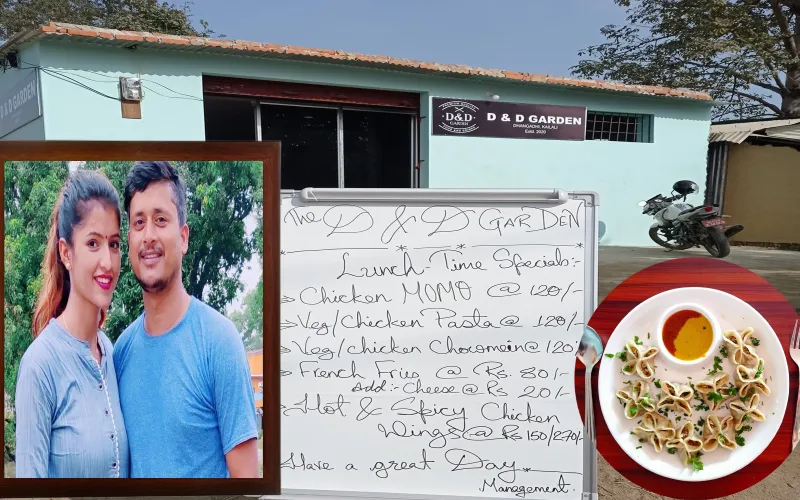 D & D GARDEN
D&D
GARDEN
D & D GARDEN
DHANGADHI, KAILALI
Estd. 2020
The D & D GarDEN
Lunch-Time Specials:-
Chicken MOMO @ 120/-
Veg/Chicken Pasta @ 120/-
Veg/chicken Chocomein @ 120
French Fries @ Rs. 80/-
Add:- Cheese @ Rs 20/-
Hot & Spicy Chicken
Wings @ Rs 150/270/-
Have a great Day
Management.